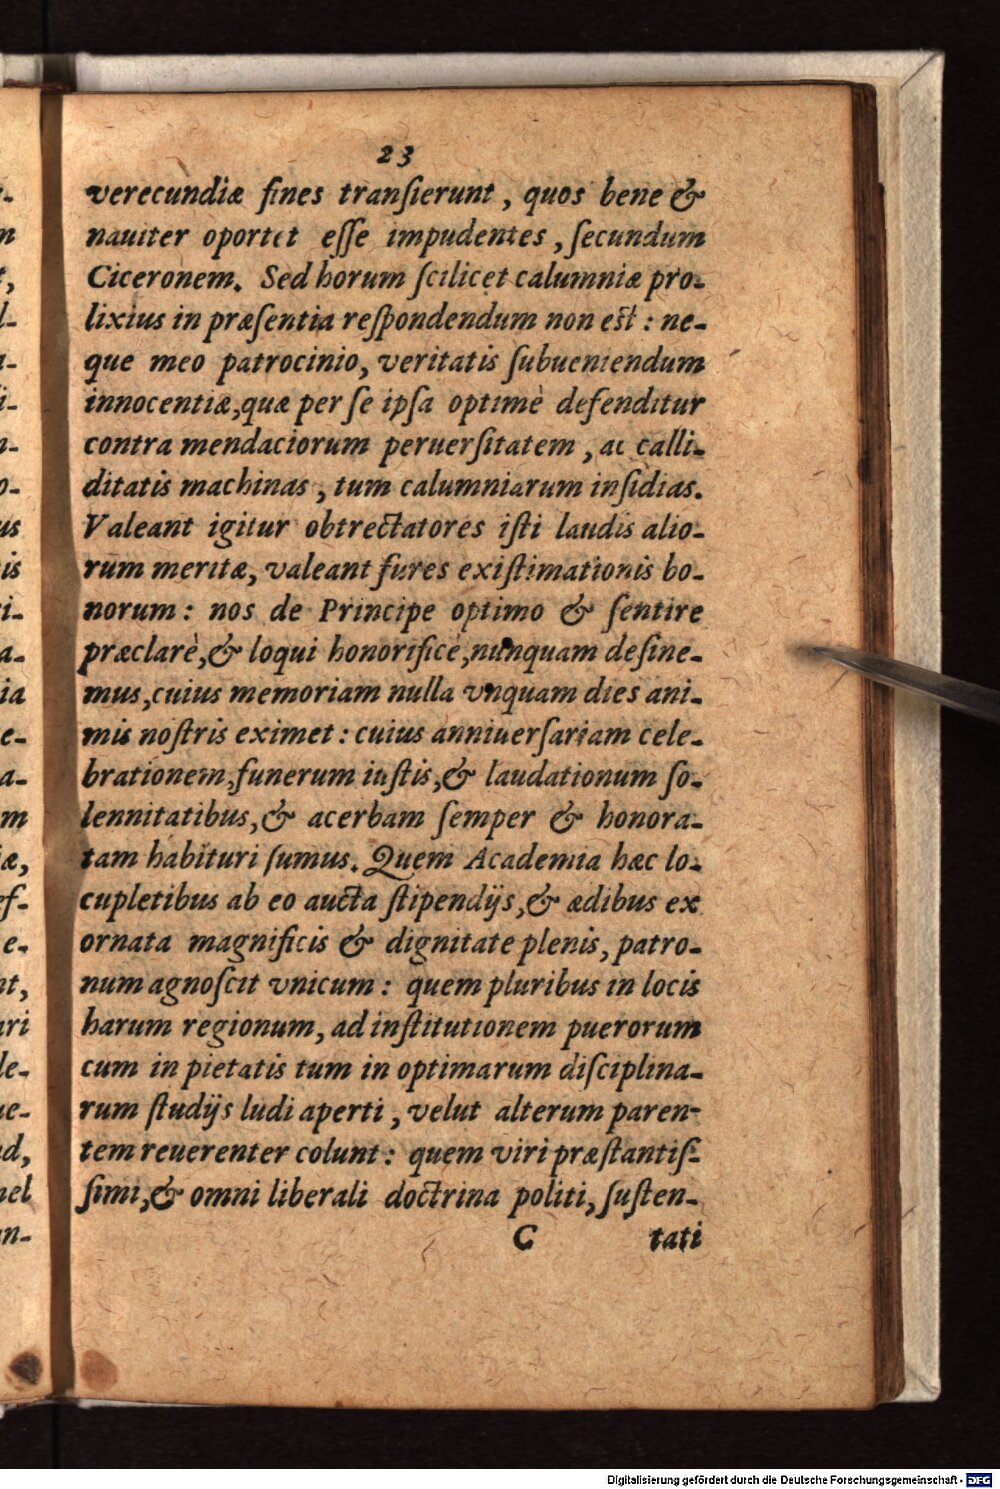 23
verecundiæ fines tranſierunt, quos bene &
nauiter oportet eſſe impudentes, ſecundum
Ciceronem. Sed horum ſcilicet calumniæ pro-
lixius in præſentia reſpondendum non eſt: ne-
que meo patrocinio, veritatis ſubueniendum
innocentiæ, quæ per ſe ipſa optimè defenditur
contra mendaciorum peruerſitatem, ac calli-
ditatis machinas, tum calumniarum inſidias.
Valeant igitur obtrectatores iſti laudis alio-
rum meritæ, valeant fures exiſtimationis bo-
norum: nos de Principe optimo & ſentire
præclarè, & loqui honorificè, nunquam deſine-
mus, cuius memoriam nulla vnquam dies ani-
mis noſtris eximet: cuius anniuerſariam cele-
brationem, funerum iuſtis, & laudationum ſo-
lennitatibus, & acerbam ſemper & honora-
tam habituri ſumus. Quem Academia hæc lo-
cupletibus ab eo aucta ſtipendijs, & ædibus ex
ornata magnificis & dignitate plenis, patro-
num agnoſcit vnicum: quem pluribus in locis
harum regionum, ad inſtitutionem puerorum
cum in pietatis tum in optimarum diſciplina-
rum ſtudijs ludi aperti, velut alterum paren-
tem reuerenter colunt: quem viri præſtantiſ-
ſimi, & omni liberali doctrina politi, ſuſten-
C tati
Digitalisierung gefördert durch die Deutsche Forschungsgemeinschaft - DFG